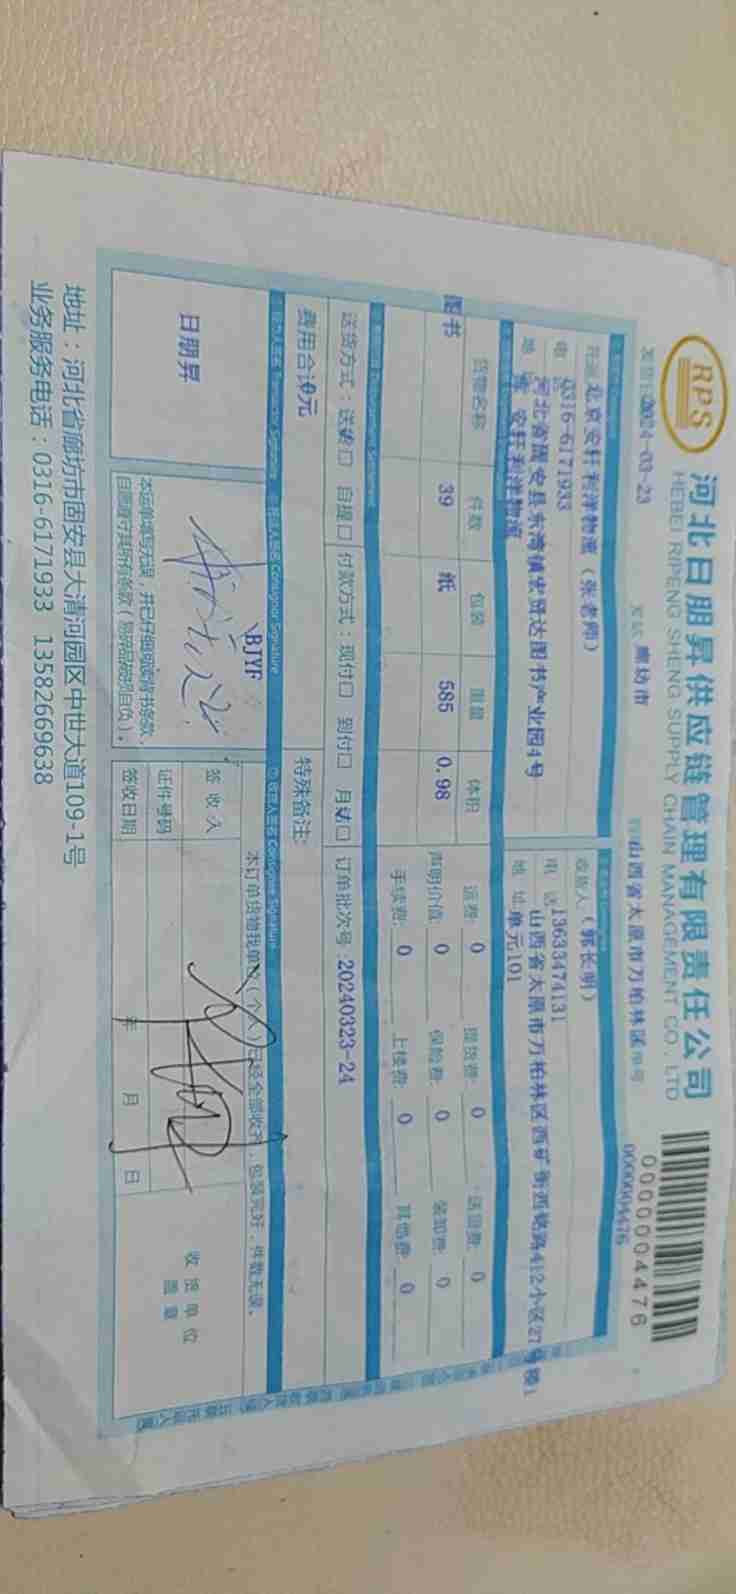 RPS
河北日朋昇供应链管理有限责任公司
HEBEI RIPENG SHENG SUPPLY CHAIN MANAGEMENT CO., LTD
0000004476
2024-03-23
廊坊市
山西省太原市万柏林区
单号
0000004476
北京安轩利洋物流（张老师）
收货人
（郭长明）
电
0316-6171933
电 话
13633474131
地
河北省固安县东湾镇宏贤达图书产业园4号
安轩利洋物流
地 址
山西省太原市万柏林区西矿街西铭路412小区27号楼1
单元101
货物名称
件数
包装
重量
体积
运费: 0
提货费: 0
送货费: 0
图书
39
纸
585
0.98
声明价值: 0
保险费: 0
装卸费: 0
手续费: 0
上楼费: 0
其他费: 0
送货方式：送货口 自提口
付款方式：现付口 到付口 月结口
订单批次号:20240323-24
费用合计:0元
特殊备注:
Transactor Signature
托运人签名 Consignor Signature
收货人签名 Consignee Signature
日朋昇
BJYF
本运单填写无误，并已仔细阅读背书条款，
本订单货物我单位（个人）已经全部收齐，包装完好，件数无误。
签 收 人
证件号码
签收日期
年 月 日
收 货 单 位
盖 章
地址：河北省廊坊市固安县大清河园区中世大道109-1号
业务服务电话：0316-6171933 13582669638